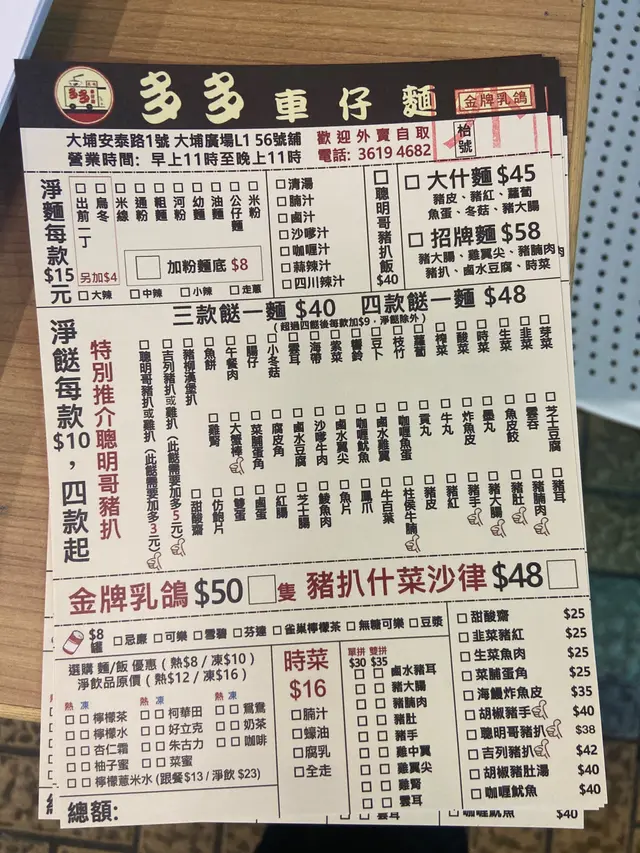 多多車仔麵
金牌乳鴿
大埔安泰路1號 大埔廣場L1 56號舖
營業時間: 早上11時至晚上11時
歡迎外賣自取
電話: 3619 4682
枱號
淨麵每款$15元
出前一丁
另加$4
烏冬
米線
通粉
粗麵
河粉
幼麵
油麵
公仔麵
米粉
加粉麵底 $8
大辣 中辣 小辣 走蔥
清湯
腩汁
鹵汁
沙嗲汁
咖喱汁
蒜辣汁
四川辣汁
聰明哥豬扒飯
$40
大什麵 $45
豬皮、豬紅、蘿蔔
魚蛋、冬菇、豬大腸
招牌麵 $58
豬大腸、雞翼尖、豬腩肉
豬扒、鹵水豆腐、時菜
三款餸一麵 $40 四款餸一麵 $48
(超過四餸後每款加$9，淨餸除外)
淨餸每款$10，四款起
特別推介聰明哥豬扒
聰明哥豬扒或雞扒 (此餸需要加多3元)
吉列豬扒或雞扒 (此餸需要加多5元)
豬柳漢堡扒
魚餅
午餐肉
腸仔
小冬菇
雲耳
海帶
紫菜
響鈴
豆卜
枝竹
蘿蔔
榨菜
酸菜
時菜
生菜
韭菜
芽菜
雞腎
大蟹棒
菜脯蛋角
腐皮角
鹵水豆腐
沙嗲牛肉
鹵水翼尖
咖喱魷魚
鹵水雞翼
咖喱魚蛋
貢丸
牛丸
炸魚皮
墨丸
魚皮餃
雲吞
芝士豆腐
甜酸齋
仿鮑片
雙蛋
鹵蛋
紅腸
芝士腸
鯪魚肉
魚片
鳳爪
牛百葉
柱侯牛腩
豬皮
豬紅
豬手
豬大腸
豬肚
豬腩肉
豬耳
金牌乳鴿 $50 隻 豬扒什菜沙律 $48
$8罐
忌廉 可樂 雪碧 芬達 雀巢檸檬茶 無糖可樂 豆漿
選購 麵/飯 優惠 ( 熱$8 / 凍$10 )
淨飲品原價 ( 熱$12 / 凍$16 )
熱 凍 熱 凍 熱 凍
檸檬茶 柯華田 鴛鴦
檸檬水 好立克 奶茶
杏仁霜 朱古力 咖啡
柚子蜜 菜蜜
檸檬薏米水 (跟餐$13 / 淨飲 $23)
總額:
時菜
$16
腩汁
蠔油
腐乳
全走
單拼 雙拼
$30 $35
鹵水豬耳
豬大腸
豬腩肉
豬肚
豬手
雞中翼
雞翼尖
雞腎
雲耳
甜酸齋 $25
韭菜豬紅 $25
生菜魚肉 $25
菜脯蛋角 $25
海鰻炸魚皮 $35
胡椒豬手 $40
聰明哥豬扒 $38
吉列豬扒 $42
胡椒豬肚湯 $40
咖喱魷魚 $40